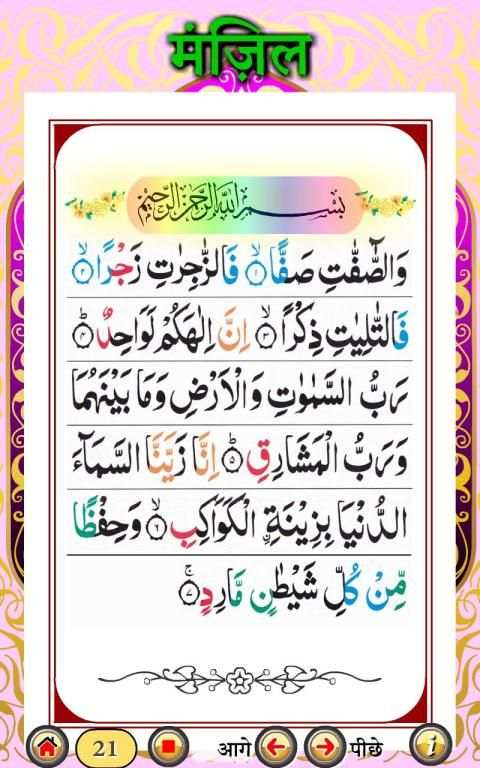 मंज़िल
بِسْمِ اللّٰهِ الرَّحْمٰنِ الرَّحِیْمِ
وَالصّٰٓفّٰتِ صَفًّا ۙ﴿۱﴾ فَالزّٰجِرٰتِ زَجْرًا ۙ﴿۲﴾
فَالتّٰلِیٰتِ ذِكْرًا ۙ﴿۳﴾ اِنَّ اِلٰهَكُمْ لَوَاحِدٌ ؕ﴿۴﴾
رَبُّ السَّمٰوٰتِ وَالْاَرْضِ وَمَا بَیْنَهُمَا
وَرَبُّ الْمَشَارِقِ ؕ﴿۵﴾ اِنَّا زَیَّنَّا السَّمَآءَ
الدُّنْیَا بِزِیْنَةِ ۣالْكَوَاكِبِ ۙ﴿۶﴾ وَحِفْظًا
مِّنْ كُلِّ شَیْطٰنٍ مَّارِدٍ ۚ﴿۷﴾
21 आगे पीछे i